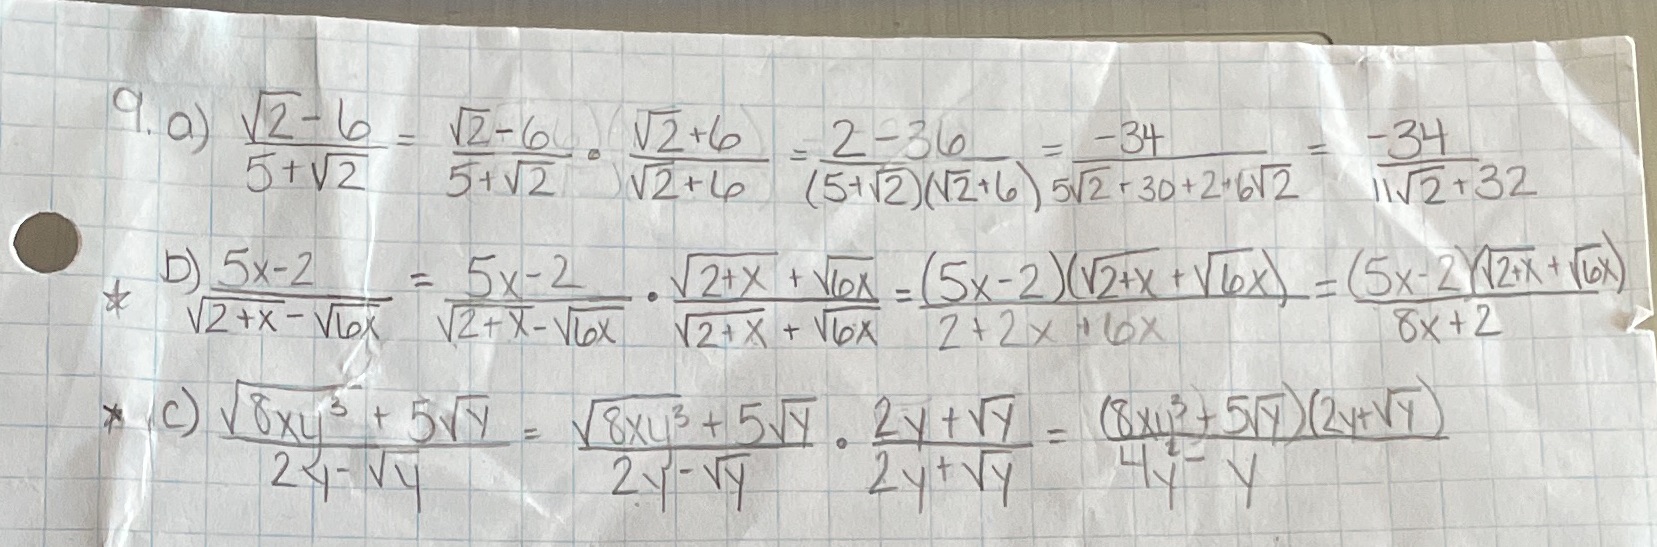 9. a) (√2 - 6)/(5+√2) = (√2 - 6)/(5+√2) · (√2 + 6)/(√2 + 6) = (2 - 36)/((5+√2)(√2+6)) = -34/(5√2 + 30 + 2 + 6√2) = -34/(11√2 + 32)
* b) (5x-2)/(√(2+x) - √(6x)) = (5x-2)/(√(2+x) - √(6x)) · (√(2+x) + √(6x))/(√(2+x) + √(6x)) = ((5x-2)(√(2+x) + √(6x)))/(2+2x+6x) = ((5x-2)(√(2+x) + √(6x)))/(8x+2)
* c) (√(8xy³) + 5√y)/(2y - √y) = (√(8xy³) + 5√y)/(2y - √y) · (2y + √y)/(2y + √y) = ((8xy³ + 5√y)(2y+√y))/(4y² - y)